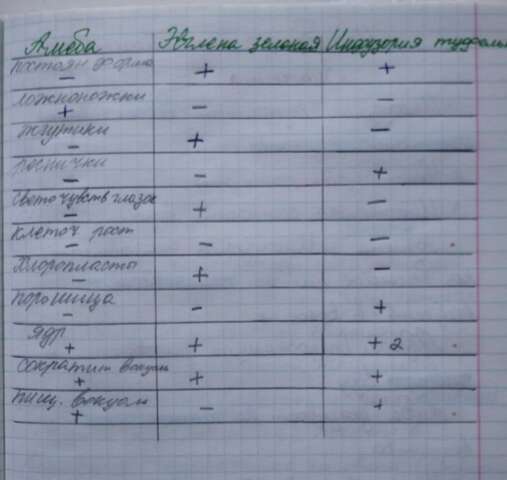 Амёба Эвглена зеленая Инфузория туфелька
постоян форма
− + +
ложноножки
+ − −
жгутики
− + −
реснички
− − +
светочувств глазок
− + −
клеточ рот
− − −
хлоропласты
− + −
порошица
− − +
ядр
+ + + 2
сократит вакуоль
+ + +
пищ. вакуоль
+ − +